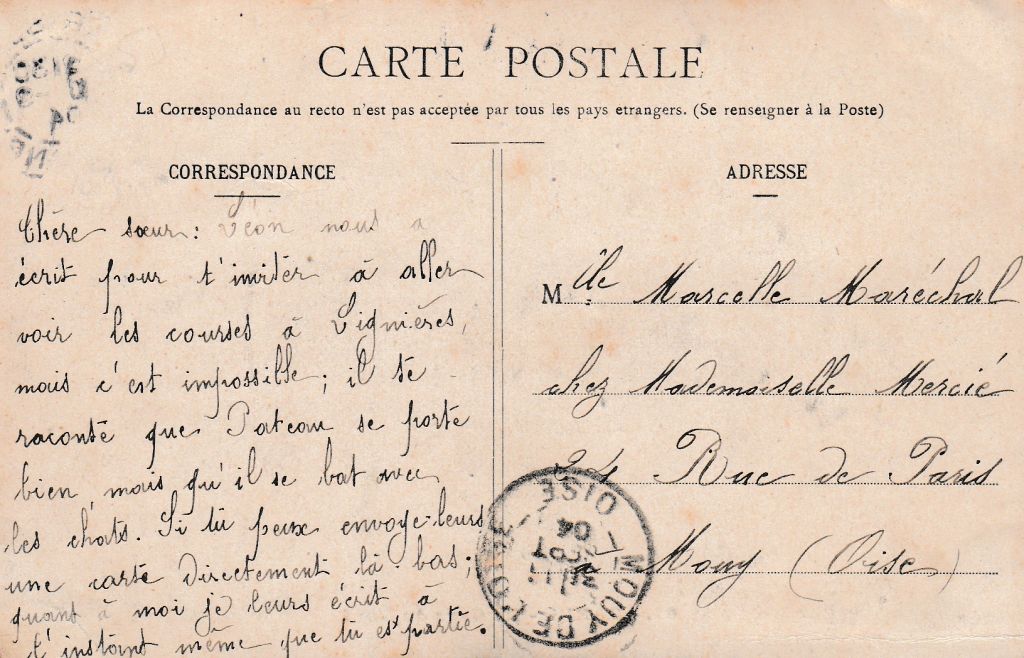 CARTE POSTALE
La Correspondance au recto n'est pas acceptée par tous les pays etrangers. (Se renseigner à la Poste)
CORRESPONDANCE
Chère sœur: Léon nous a
écrit pour t'inviter à aller
voir les courses à Lignières,
mais c'est impossible; il te
raconte que Pateau se porte
bien, mais qu'il se bat avec
les chats. Si tu peux envoye-leurs
une carte directement là bas;
quant à moi je leurs écrit à
l'instant même que tu es partie.
ADRESSE
Mlle Marcelle Maréchal
chez Mademoiselle Mercié
24 Rue de Paris
Mouy (Oise)
MOUY DE L'OISE OISE
04